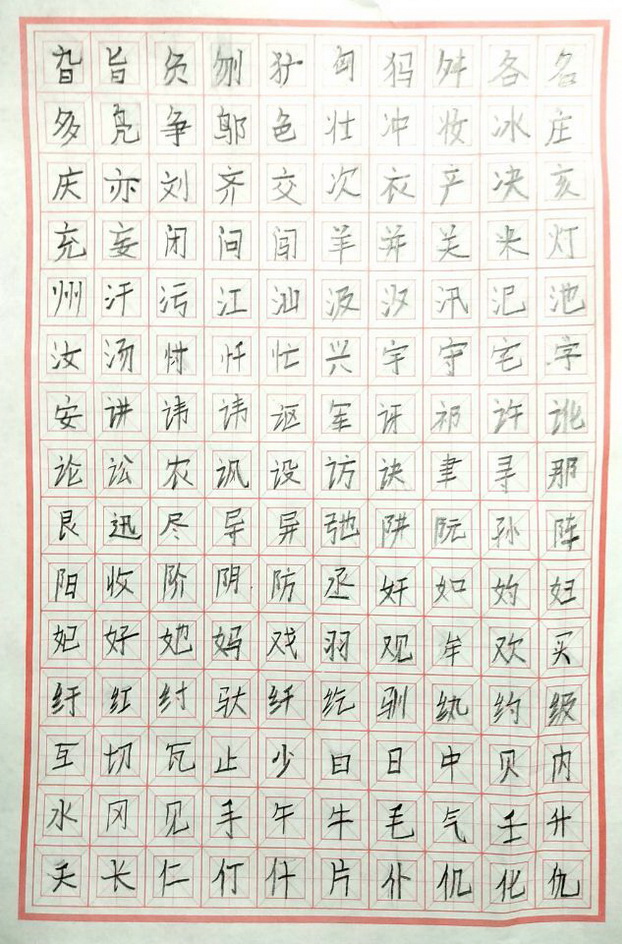 旮旨负刎犷匈犸舛各名
多凫争邬色壮冲妆冰庄
庆亦刘齐交次衣产决亥
充妄闭问闯羊并关米灯
州汗污江汕汲汐汛汜池
汝汤忖忏忙兴宇守宅字
安讲讳讳讴军讶祁许讹
论讼农讽设访诀聿寻那
艮迅尽导异弛阱阮孙阵
阳收阶阴防丞奸如妁妇
妃好她妈戏羽观牟欢买
纡红纣驮纤纥驯纨约级
互切瓦止少曰日中贝内
水冈见手午牛毛气壬升
夭长仁仃什片仆仉化仇